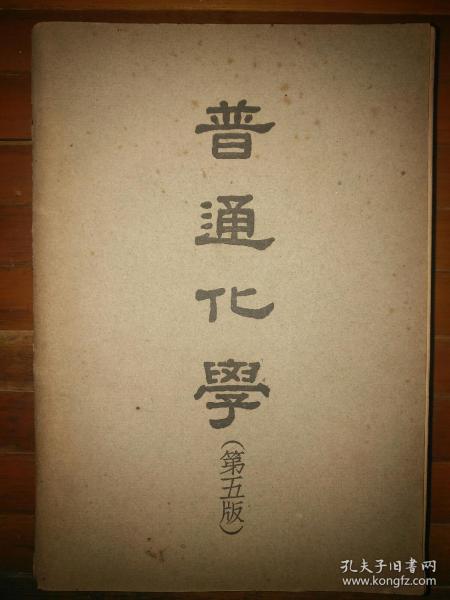 普通化學
(第五版)
孔夫子旧书网
www.kongfz.com